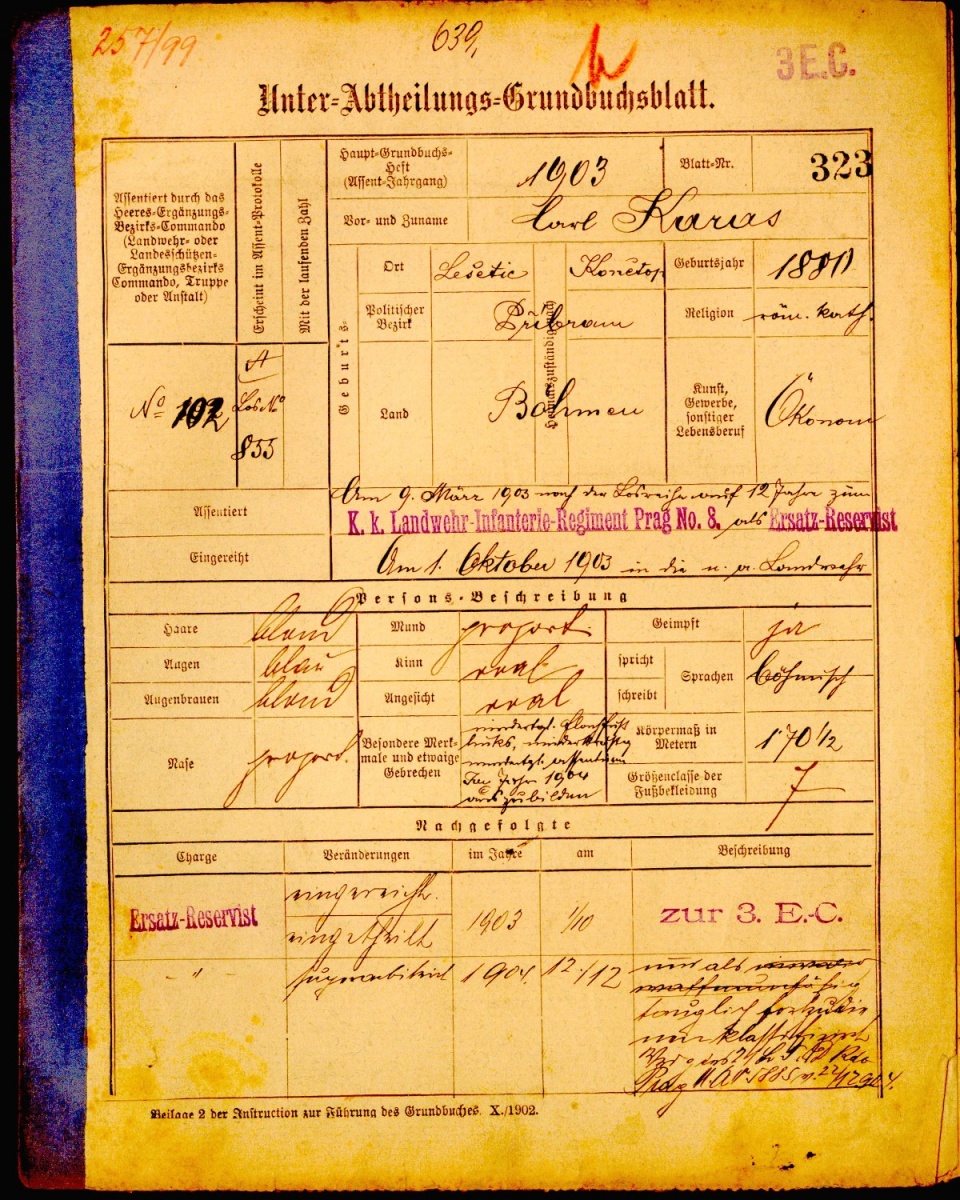 257/99
639,
3 E.C.
Unter-Abtheilungs-Grundbuchsblatt.
Assentiert durch das
Heeres-Ergänzungs-
Bezirks-Commando
(Landwehr- oder
Landesschützen-
Ergänzungsbezirks
Commando, Truppe
oder Anstalt)
Erscheint im Assent-Protokolle
Mit der laufenden Zahl
Haupt-Grundbuchs-
Heft
(Assent-Jahrgang)
1903
Blatt-Nr.
323
Vor- und Zuname
Carl Karas
Geburts-
Ort
Lešetic
Heimatszuständigkeit
Konětop
Geburtsjahr
1880
Politischer
Bezirk
Přibram
Religion
röm. kath.
Land
Böhmen
Kunst,
Gewerbe,
sonstiger
Lebensberuf
Ökonom
No 102
A
Los No
855
Assentiert
Am 9. März 1903 nach der Losreihe auf 12 Jahre zum
K. k. Landwehr-Infanterie-Regiment Prag No. 8. als Ersatz-Reservist
Eingereiht
Am 1. Oktober 1903 in die n. a. Landwehr
Persons-Beschreibung
Haare
blond
Mund
proport.
Geimpft
ja
Augen
blau
Kinn
oval
spricht
schreibt
Sprachen
böhmisch
Augenbrauen
blond
Angesicht
oval
Nase
proport.
Besondere Merk-
male und etwaige
Gebrechen
links,
Im Jahre 1904
auszubilden
Körpermaß in
Metern
1·70 1/2
Größenclasse der
Fußbekleidung
7
Nachgefolgte
Charge
Veränderungen
im Jahre
am
Beschreibung
Ersatz-Reservist
eingereiht.
eingetheilt
1903
1/10
zur 3. E.-C.
- " -
superarbitriert
1904.
12./12
nur als
tauglich
klassifiziert
Prag
Beilage 2 der Instruction zur Führung des Grundbuches. X./1902.